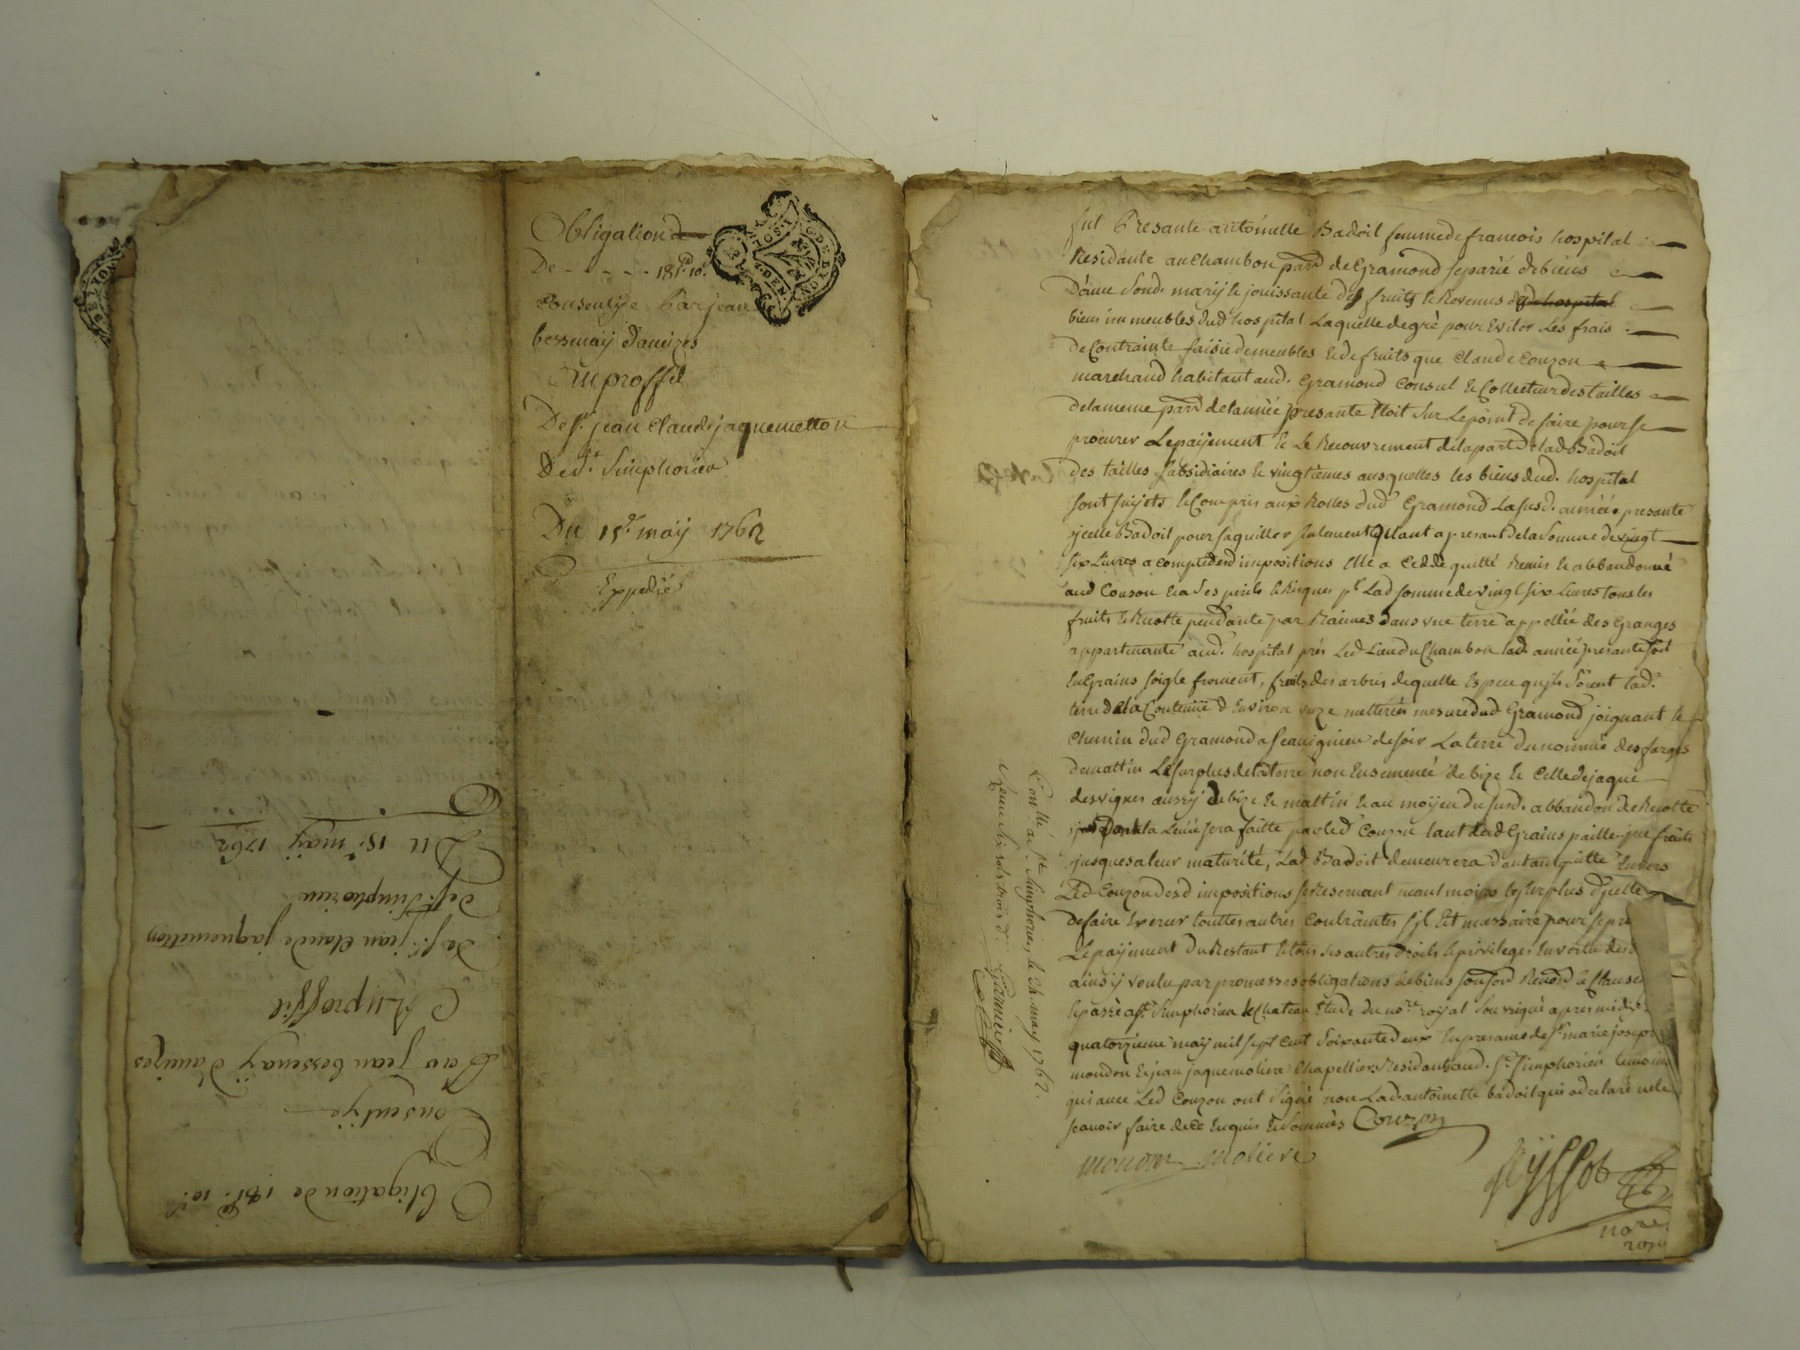 Obligation de
De - - - - - 18lt. 10s.
Consentye Par jean
bessenaÿ D'aveizes
Au proffit
De sr. jean Claude jaquemetton
De st. Simphorien
Du 15e. maÿ 1762
Expedié
Obligation de 18lt. 10s.
Consentye
Par jean bessenaÿ D'aveizes
Au proffit
De sr. jean Claude jaquemetton
De st. Simphorien
Du 15e. maÿ 1762
fut Presante antoinette Badoil femme de francois hospital
Residante au Chambon parr. de Gramond separée de biens
D'avec sond. marÿ & jouissante des fruits & Revenus dud hospital
biens immeubles dud hospital Laquelle de gré pour Eviter Les frais
De Contrainte saisie de meubles & de fruits que Claude Couzon
marchand habitant aud. Gramond Consul & Collecteur des tailles
de la meme parr. de l'année presante Etoit sur Le point de faire pour se
procurer Le paÿement & Le Recouvrement de la part de lad Badoil
des tailles subsidiaires & vingtiemes ausquelles les biens dud. hospital
sont sujets & Compris aux Rolles dud Gramond La susd. année presante
ycelle Badoil pour s'aquitter seulement quant a presant de la somme de vingt
six Livres a compte desd impositions Elle a Cedde quitté Remis & abbandonné
aud Couzon & a ses perils & Risques pr. Lad somme de vingt six Livres tous les
fruits & Recolte pendante par Racines dans une terre appellée des Granges
appartenante aud. hospital près Led Lieu du Chambon lad. année presante soit
En Grains soigle froment, fruits des arbres de quelle Espece qu'ils soient lad.
terre de la Contenue d'Environ onze metterés mesure dud Gramond joignant le
Chemin dud Gramond a de soir La terre du nommé desfarges
de mattin Le surplus de la terre non Ensemencé de bize & Celle de jaque
desvignes aussÿ de bize & mattin & au moÿen du susd. abbandon de Recolte
dont la Levée sera faitte par led Couzon tant desd Grains paille que fruits
jusques a leur maturité, Lad Badoil demeurera d'autant quitte Envers
Led Couzon desd impositions se Reservant neantmoins Le surplus d'ycelle
de faire Exercer touttes autres Contraintes s'il Est necessaire pour se pro
Le paÿement du Restant & tous ses autres droits & privileges En vertu des
ainsÿ voulu par promesses obligations de biens
fait & passé a st. Simphorien le Chateau Etude du nore. roÿal soussigné apres midÿ
quatorzieme maÿ mil sept cent soixante deux En presance de sr. marie joseph
mondon & jean jaque moliere Chapellier Residants aud. st. Simphorien temoins
qui avec Led Couzon ont signé non Lad. antoinette badoil qui a declaré ne le
scavoir faire de ce Enquis & sommés Couzon
moliere
nore.
Conllé. a st. Simphorien le 24. may 1762.
Reçu six sols trois d.